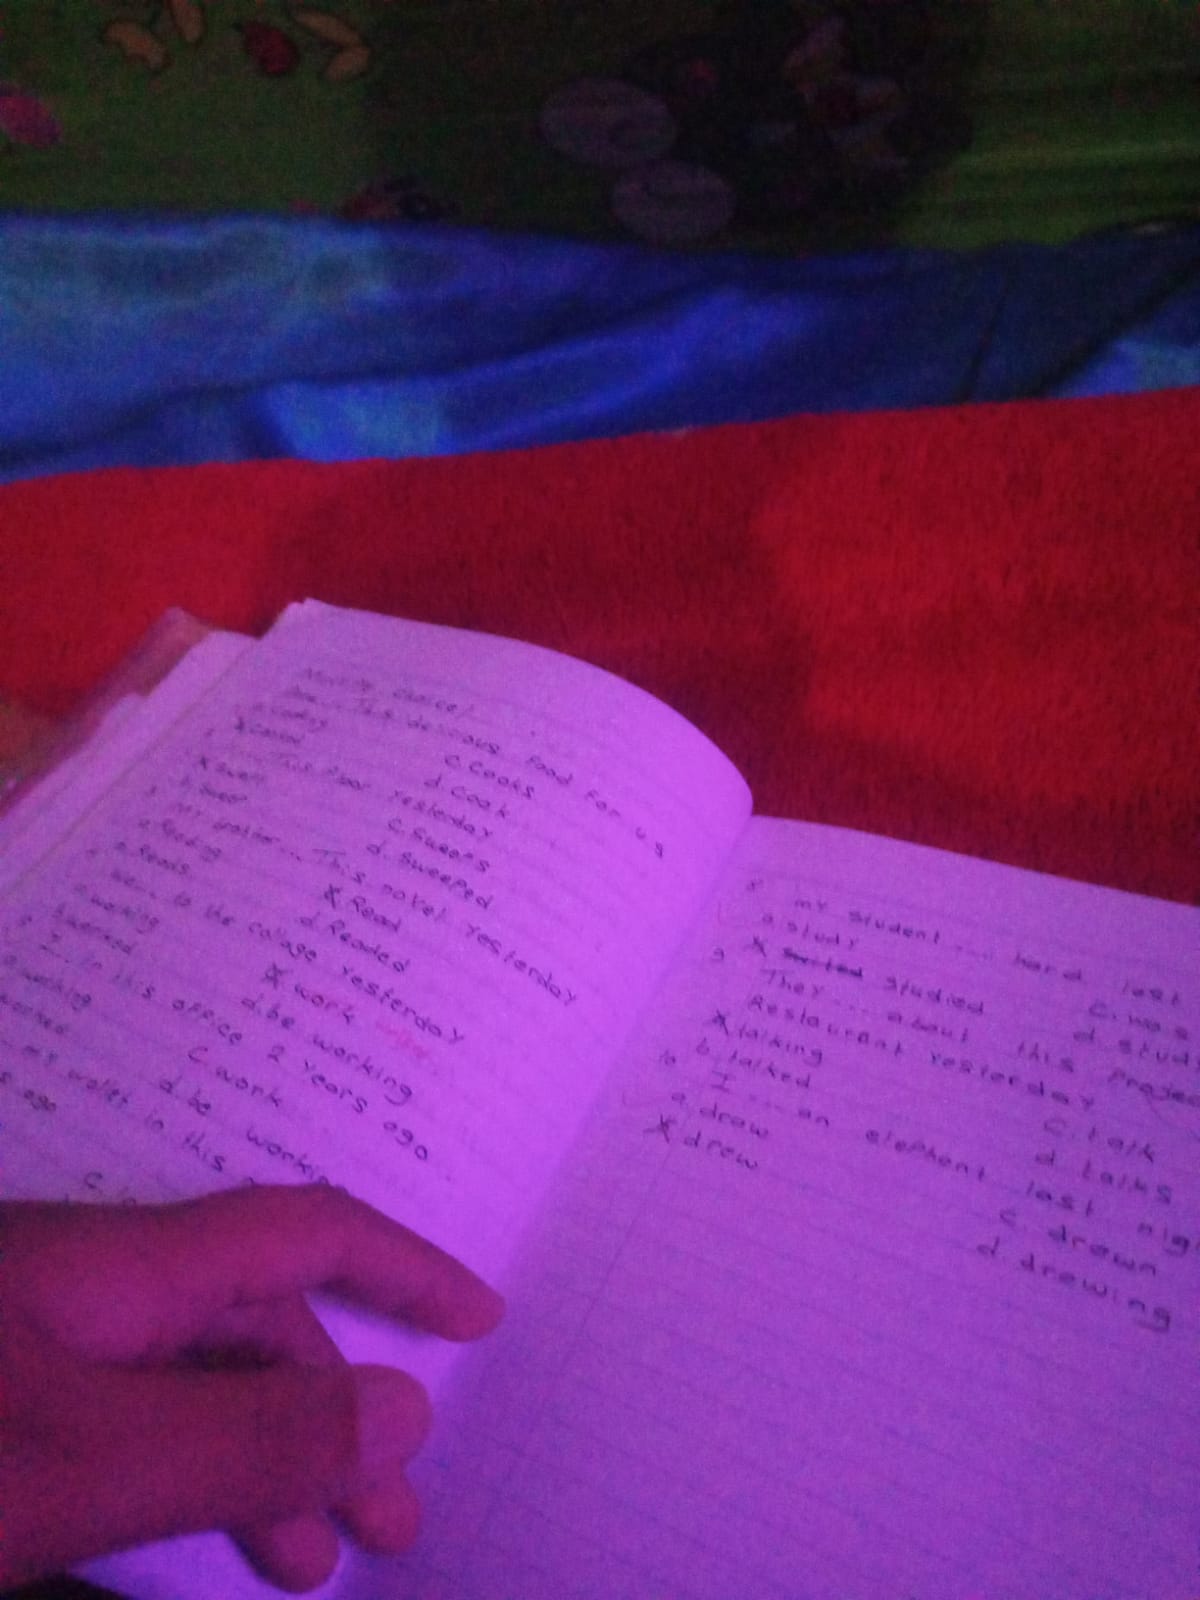 Multiple choice!
This delicious food for us
a. cooking
c. cooks
cooked
d. cook
This floor yesterday
swept
c. sweeps
b. sweep
d. sweeped
3. My father... This novel yesterday
a. Reading
Read
b. Reads
d. Readed
we... to the collage yesterday
a. walking
work
b. worked
d. be working
I... in this office 2 years ago
a. working
c. work
worked
d. be working
my wallet in this
ago
c.
8. my student .... hard last
a. study
c. was
studied
d. stud
9 They ... about this projec
Restaurant yesterday
talking
c. talk
b. talked
d. talks
10 I ... an elephant last nig
a. draw
c. drawn
drew
d. drewing